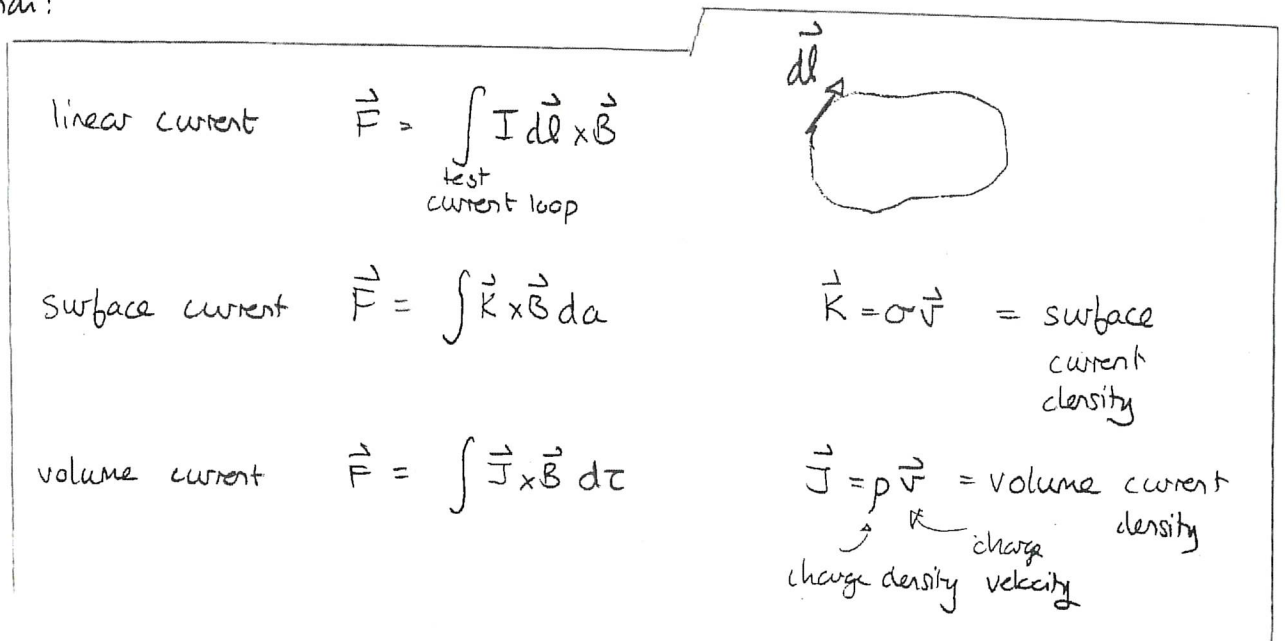 dl⃗
linear current F⃗ = ∫ I dl⃗ × B⃗
test
current loop
surface current F⃗ = ∫ K⃗ × B⃗ da K⃗ = σv⃗ = surface
current
density
volume current F⃗ = ∫ J⃗ × B⃗ dτ J⃗ = ρv⃗ = volume current
density
charge
charge density velocity